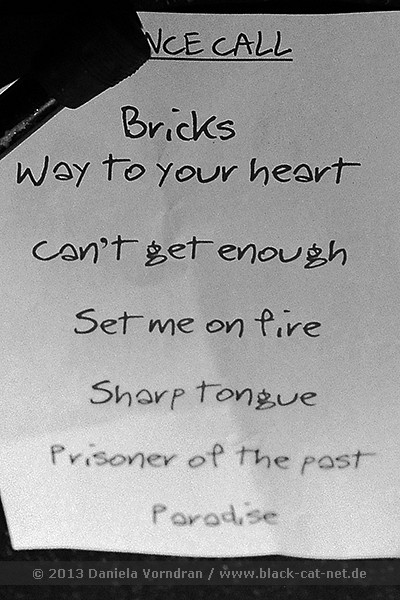 NCE CALL
Bricks
Way to your heart
Can't get enough
Set me on fire
Sharp tongue
Prisoner of the past
Paradise
© 2013 Daniela Vorndran / www.black-cat-net.de